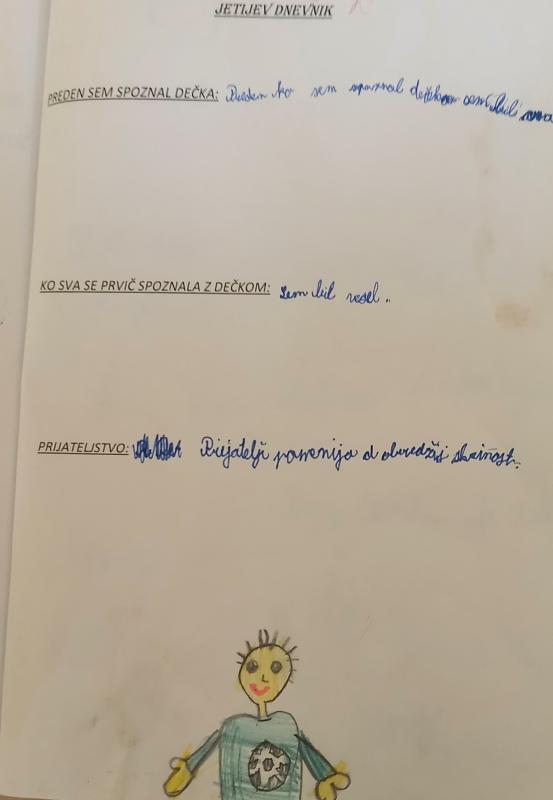 JETIJEV DNEVNIK
PREDEN SEM SPOZNAL DEČKA: Preden ko sem spoznal dečka sem bil
KO SVA SE PRVIČ SPOZNALA Z DEČKOM: sem bil vesel..
PRIJATELJSTVO: Prijatelji pomenija d obvedžij skrivnost.